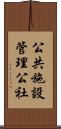 公共施設
管理公社